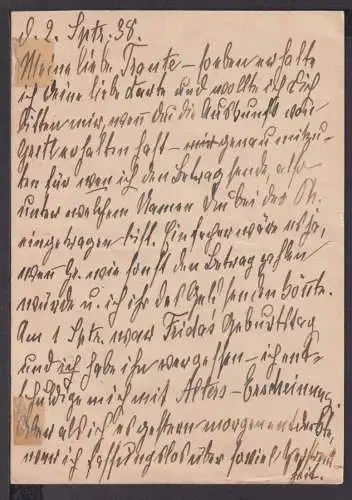 d. 2. Sptr. 38.
Meine liebe Trante – soeben erhalte
ich deine liebe Karte und wollte ich Dich
bitten mir, wen du die Auskunft von
Gritl erhalten hast – mir genau mitzu-
ten für wen ich den Betrag sende, also
unter welchem Namen Du bei der
eingetragen bist. Einfacher wäre es ja,
wen Gr. wie sonst den Betrag zahlen
würde u. ich ihr das Geld senden könte.
Am 1 Sptr. war Frida's Geburtstag
und ich habe ihn vergessen – ich ent-
schuldige mich mit Alters-Erscheinung
Aber als ich es gestern morgen entdeckte,
wen ich fassungslos über soviel
heit.